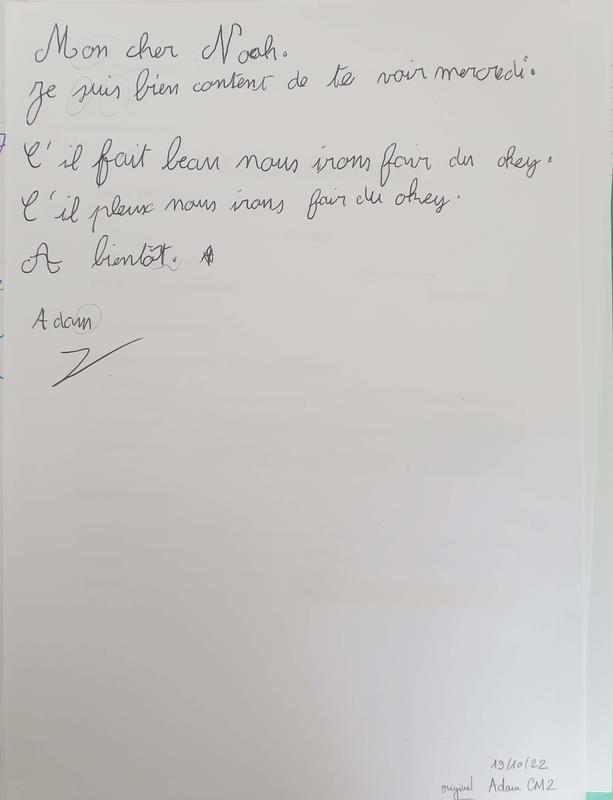 Mon cher Noah.
Je suis bien content de te voir mercredi.
C'il fait beau nous irons fair du okey.
C'il pleux nous irons fair du okey.
A bientôt.
Adam
19/10/22
original Adam CM2